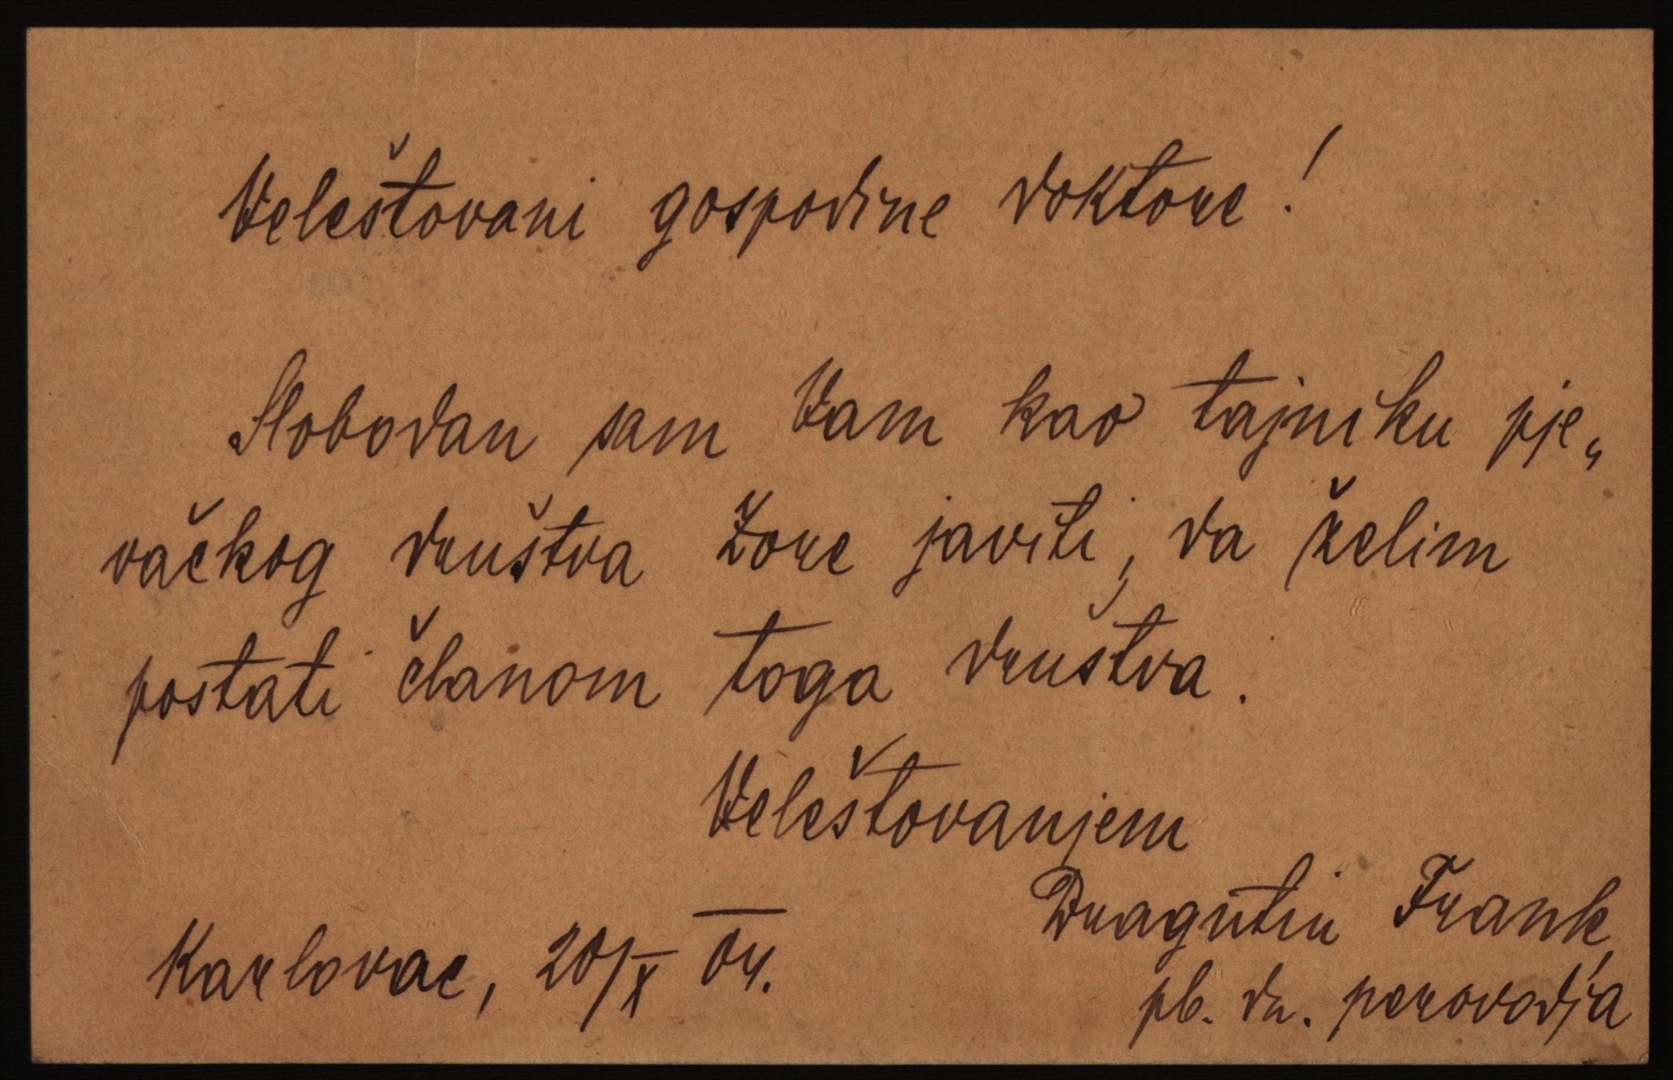 Veleštovani gospodine doktore!
Slobodan sam Vam kao tajniku pje„
vačkog društva Zore javiti, da želim
postati članom toga društva.
Veleštovanjem
Dragutin Frank,
Karlovac, 20/X 04.
pb. dr. perovodja